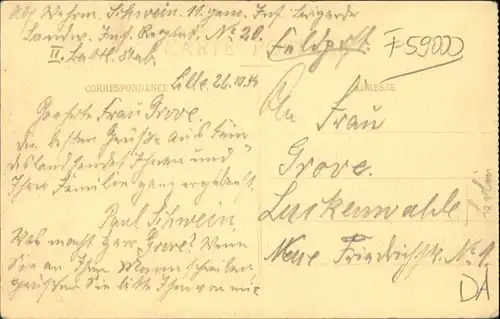 Abs. Wehrm. Schwein. 11. gem. Inf. Brigade
Landw. Inf. Regimt. No 20.
II. Batl. Stab.
CARTE P
Feldpost.
F59000
CORRESPONDANCE
ADRESSE
Lille, 26.10.14
Geehrte Frau Grove
die besten Grüße aus Fein
desland sendet Ihnen und
Ihrer Familie ganz ergebenst.
Paul Schwein.
Was macht Herr Grove? Wenn
Sie an Ihren Mann schreiben,
grüßen Sie bitte Ihn von mir.
An
Frau
Grove.
Luckenwalde
Neue Friedrichstr. No 1.
DA